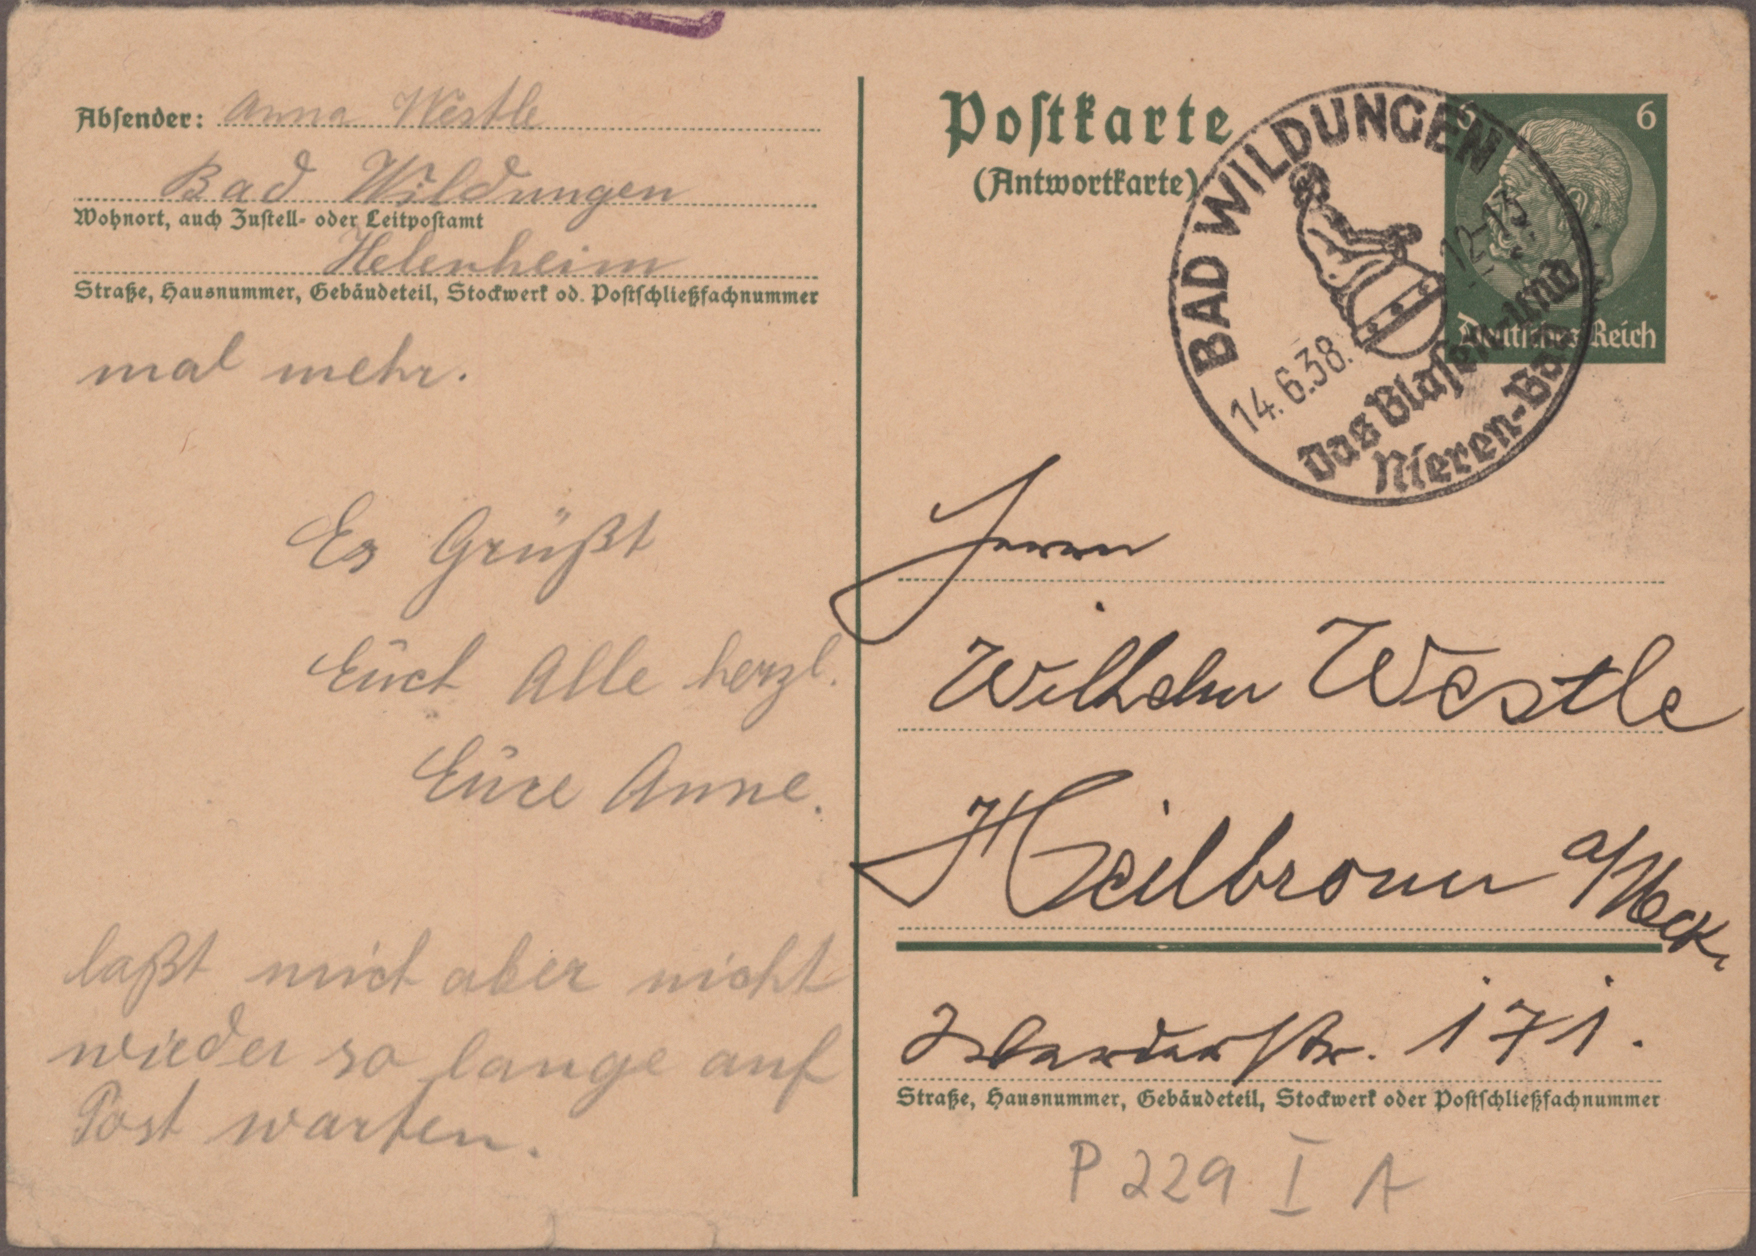 Absender: Anna Westle
Bad Wildungen
Wohnort, auch Zustell- oder Leitpostamt
Helenheim
Straße, Hausnummer, Gebäudeteil, Stockwerk od. Postschließfachnummer
mal mehr.
Es Grüßt
Euch Alle herzl.
Eure Anne.
laßt mich aber nicht
wieder so lange auf
Post warten.
Postkarte
(Antwortkarte)
BAD WILDUNGEN
14.6.38.
12-13
Das Blasen- und
Nieren-Bad
6 6
Deutsches Reich
Herrn
Wilhelm Westle
Heilbronn a/Neck.
Werderstr. 171.
Straße, Hausnummer, Gebäudeteil, Stockwerk oder Postschließfachnummer
P 229 I A